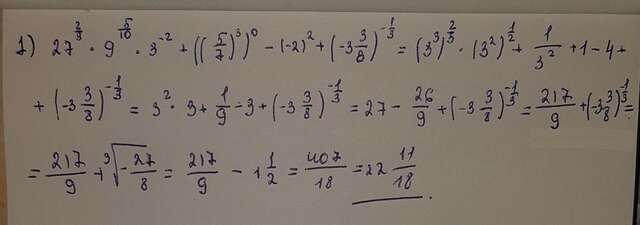 1) 27^(2/3) · 9^(5/10) · 3^(-2) + ((5/7)^3)^0 - (-2)^2 + (-3 3/8)^(-1/3) = (3^3)^(2/3) · (3^2)^(1/2) + 1/3^2 + 1 - 4 +
+ (-3 3/8)^(-1/3) = 3^2 · 3 + 1/9 - 3 + (-3 3/8)^(-1/3) = 27 - 26/9 + (-3 3/8)^(-1/3) = 217/9 + (-3 3/8)^(-1/3) =
= 217/9 + ∛(-27/8) = 217/9 - 1 1/2 = 407/18 = 22 11/18.